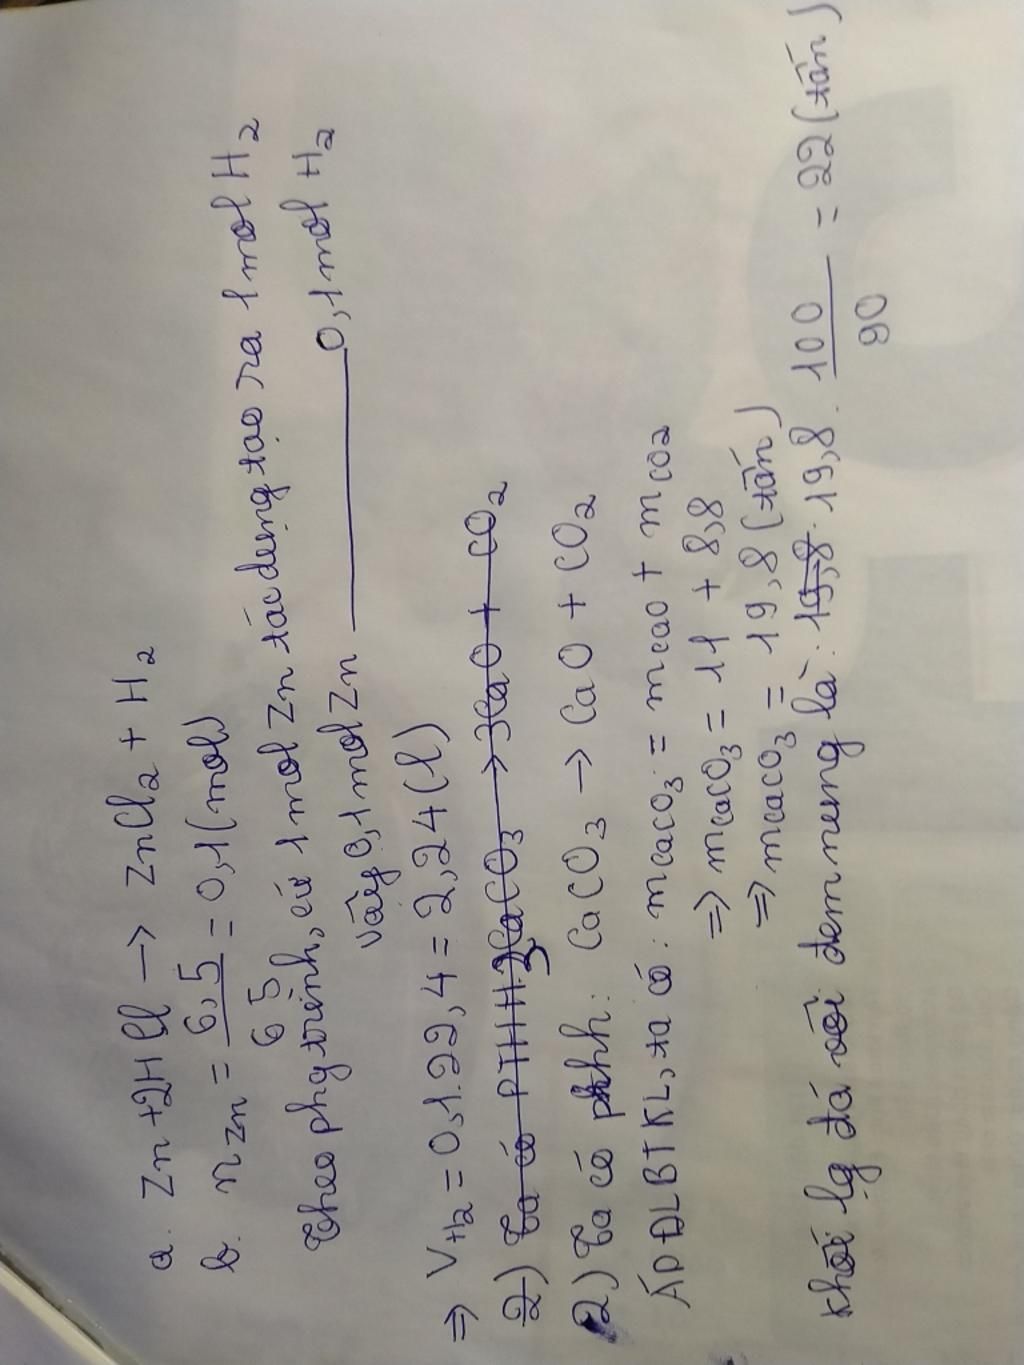 a. Zn + 2HCl → ZnCl2 + H2
b. nZn = 6,5/65 = 0,1 (mol)
Theo phg trình, cứ 1 mol Zn tác dụng tạo ra 1 mol H2
Vậy 0,1 mol Zn ——— 0,1 mol H2
⇒ VH2 = 0,1.22,4 = 2,24 (l)
2) Ta có PTHH: CaCO3 → CaO + CO2
2) Ta có pthh: CaCO3 → CaO + CO2
ÁP ĐLBTKL, ta có: mCaCO3 = mCaO + mCO2
⇒ mCaCO3 = 11 + 8,8
⇒ mCaCO3 = 19,8 (tấn)
Khối lg đá vôi đem nung là: 19,8. 19,8 . 100/90 = 22 (tấn)